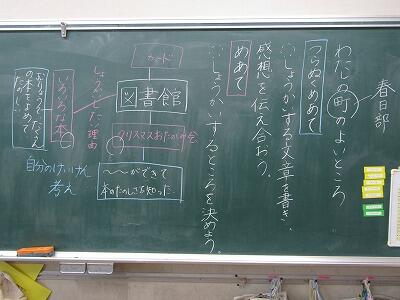 春日部
わたしの町のよいところ
つらぬくめあて
しょうかいする文章を書き、
感想を伝え合おう。
めあて
しょうかいするところを決めよう。
カード
図書館
クリスマスおたのしみ会
～～ができて
本のたのしさを知った。
しょうかいした理由
いろいろな本
自分のけいけん
考え